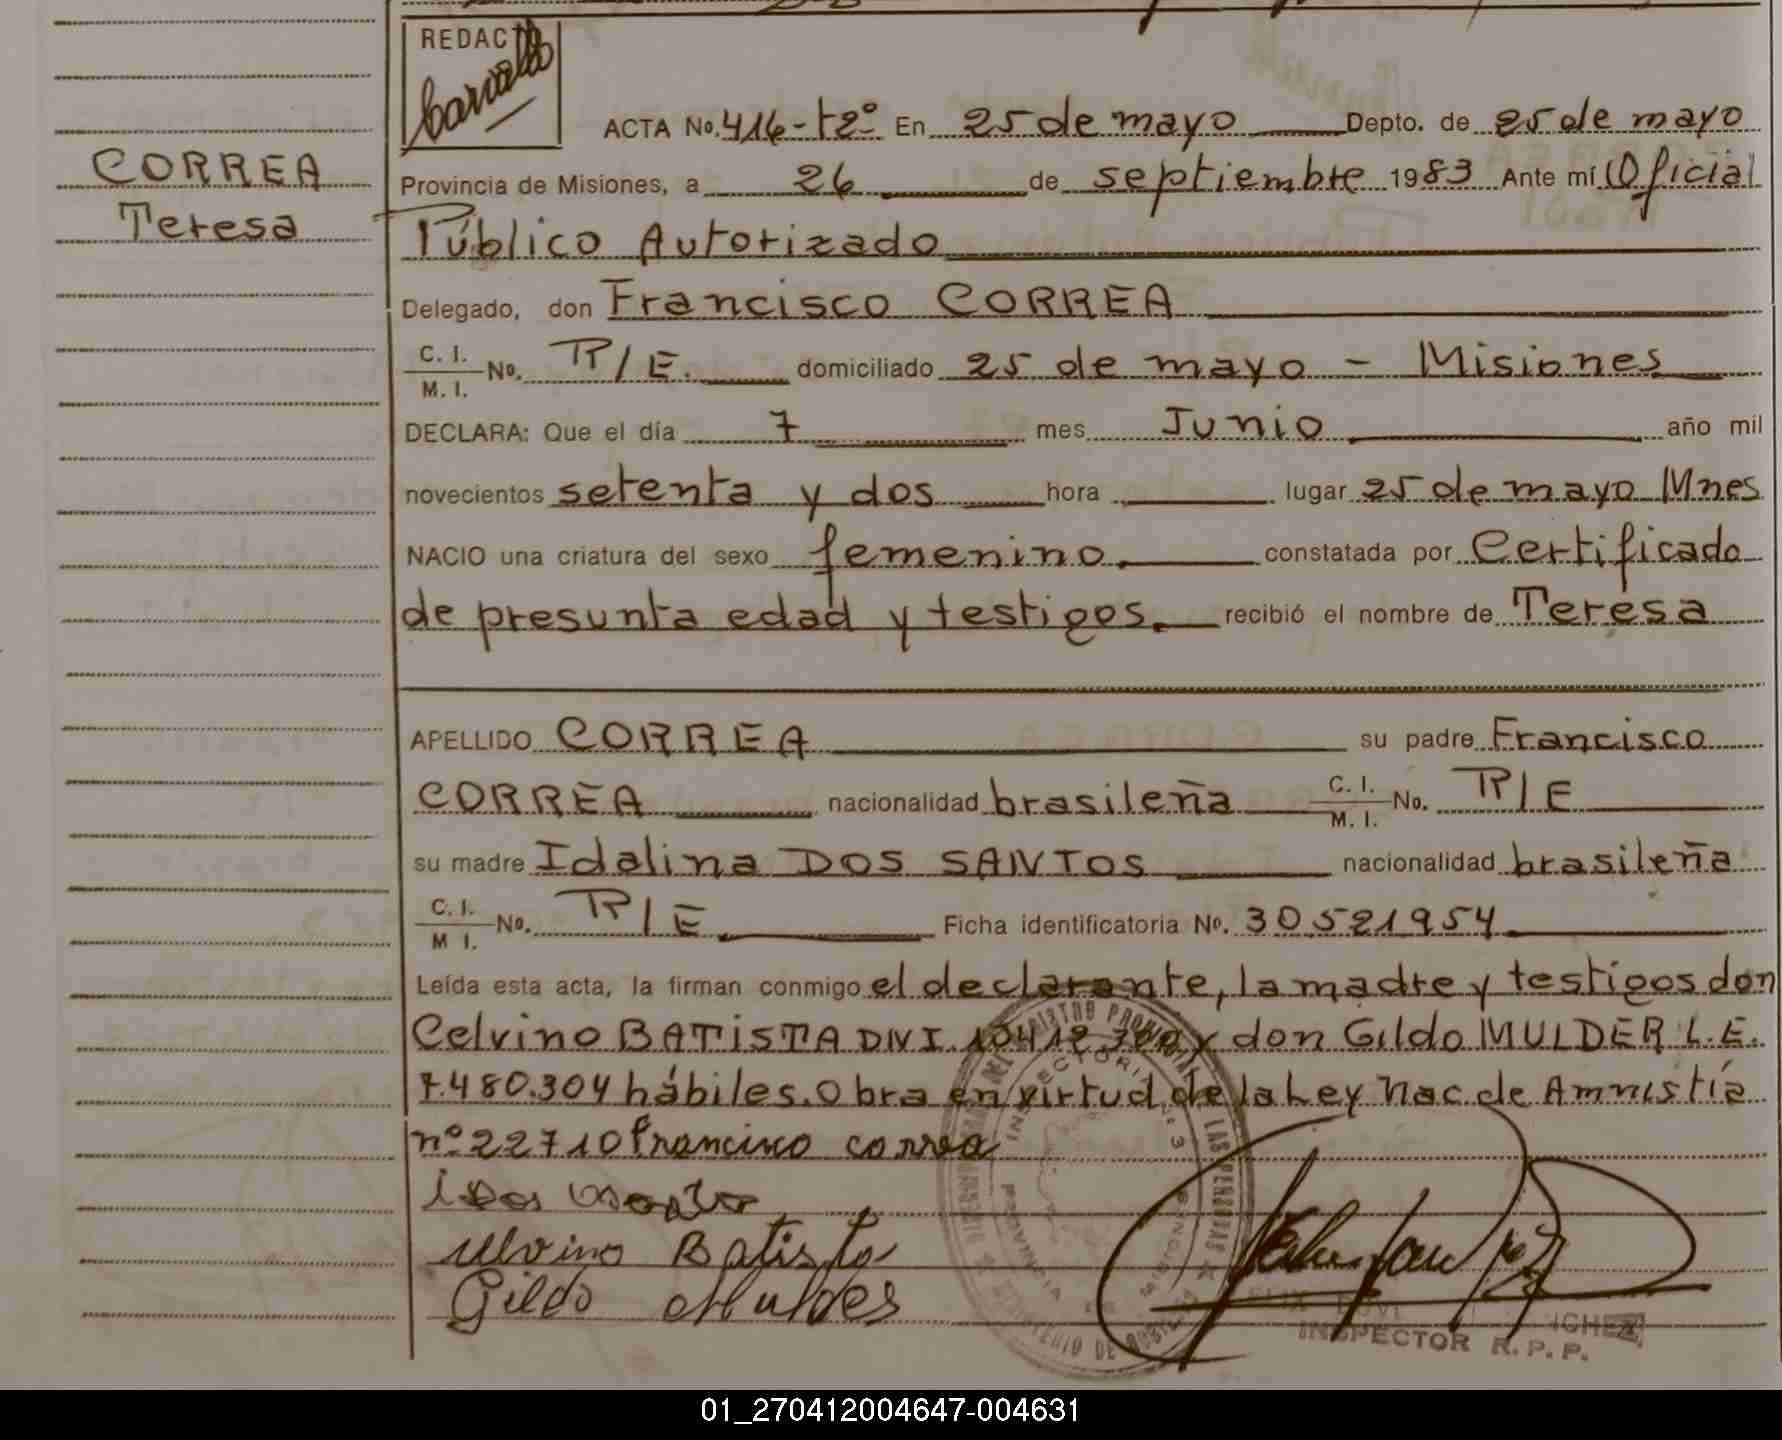 REDACTO
CORREA
Teresa
ACTA No. 416-t2º En 25 de mayo Depto. de 25 de mayo
Provincia de Misiones, a 26 de septiembre 1983 Ante mí Oficial
Público Autorizado
Delegado, don Francisco CORREA
C. I.
M. I. No. R/E. domiciliado 25 de mayo - Misiones
DECLARA: Que el día 7 mes Junio año mil
novecientos setenta y dos hora lugar 25 de mayo Mnes
NACIO una criatura del sexo femenino constatada por Certificado
de presunta edad y testigos. recibió el nombre de Teresa
APELLIDO CORREA su padre Francisco
CORREA nacionalidad brasileña C. I. M. I. No. R/E
su madre Idalina DOS SANTOS nacionalidad brasileña
C. I. M I. No. R/E Ficha identificatoria No. 30521954
Leída esta acta, la firman conmigo el declarante, la madre y testigos don
Celvino BATISTA DNI. y don Gildo MULDER L.E.
7.480.304 hábiles. Obra en virtud de la Ley Nac. de Amnistía
nº 22710 Francisco correa
Batista
Gildo Mulder
INSPECTOR R. P. P.
01_270412004647-004631